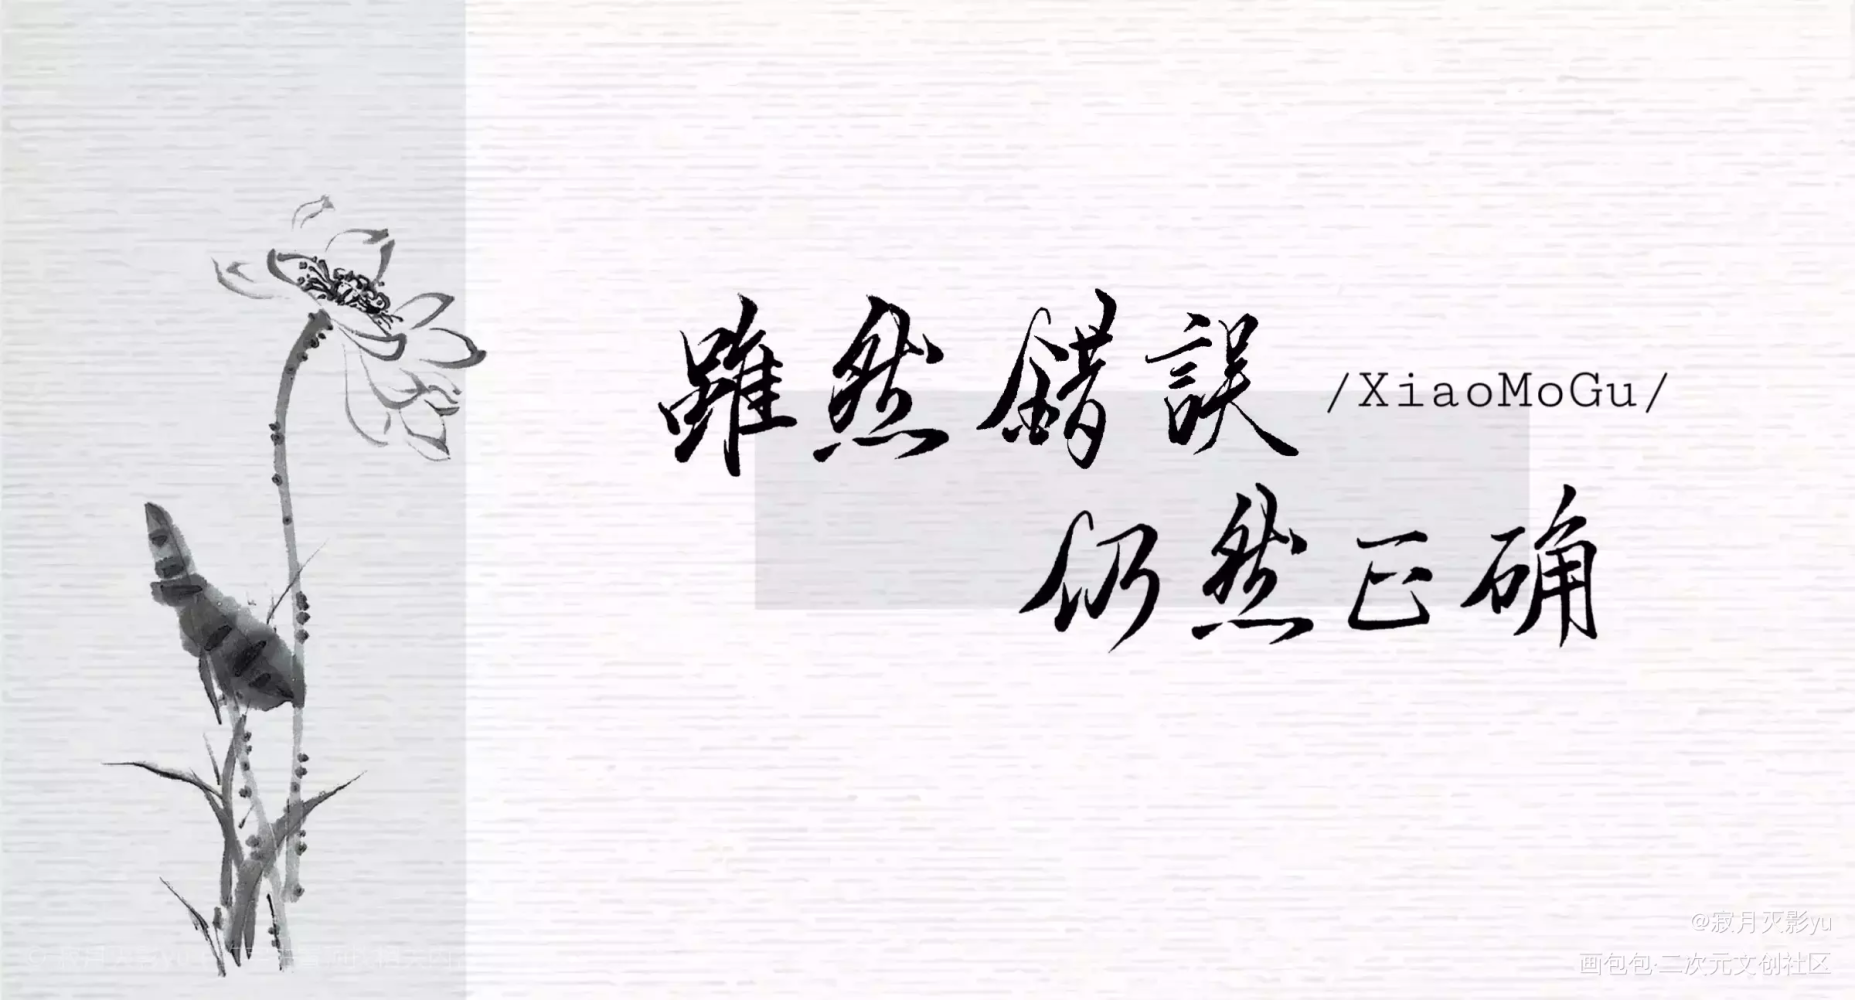 雖然錯誤 /XiaoMoGu/
仍然正确
@寂月灭影yu
画包包·二次元文创社区